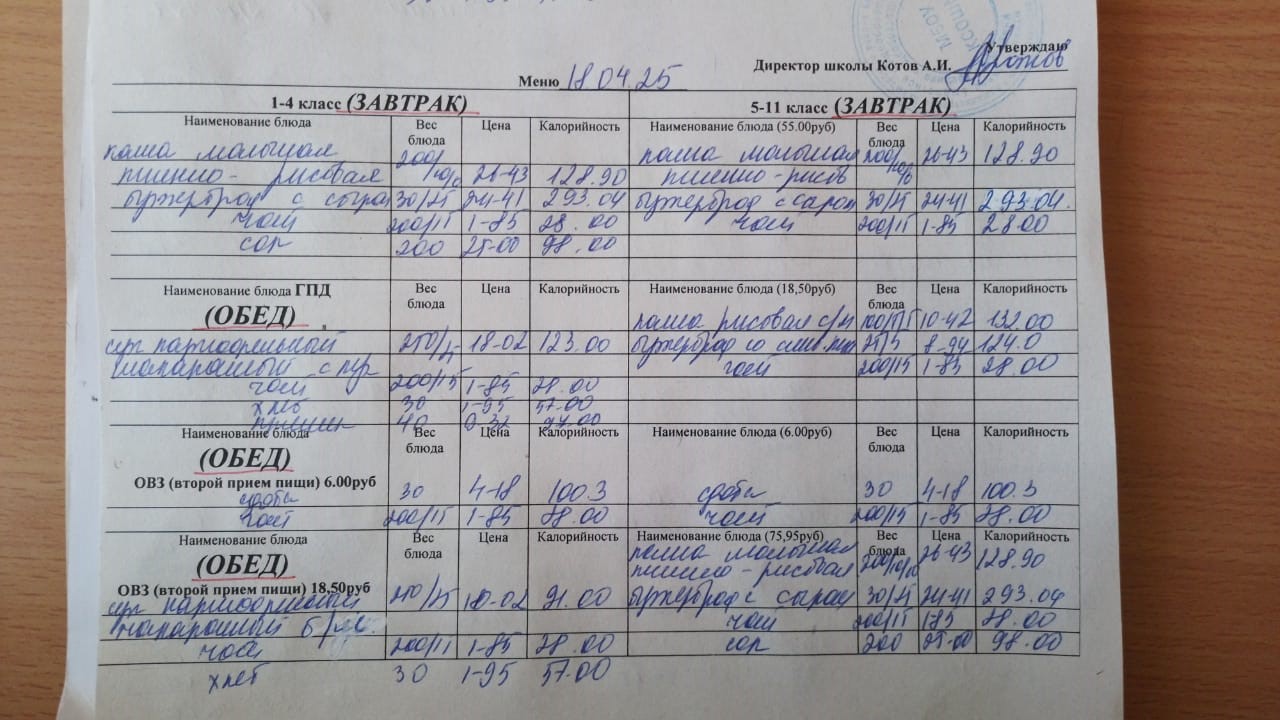 Утверждаю
Директор школы Котов А.И.
Меню 18 04 25
1-4 класс (ЗАВТРАК) 5-11 класс (ЗАВТРАК)
Наименование блюда Вес блюда Цена Калорийность Наименование блюда (55.00руб) Вес блюда Цена Калорийность
каша молочная 200/ каша молочная 200/10/6 26-43 128.90
пшенно-рисовая 10/6 26-43 128.90 пшенно-рисов
бутерброд с сыром 30/25 24-41 293.04 бутерброд с сыром 30/25 24-41 293.04.
чай 200/15 1-85 28.00 чай 200/15 1-85 28.00
сок 200 25-00 98.00
Наименование блюда ГПД Вес блюда Цена Калорийность Наименование блюда (18,50руб) Вес блюда Цена Калорийность
(ОБЕД) каша рисовая 10-42 132.00
суп картофельный 250/25 18-02 123.00 бутерброд со 8-94 124.0
макаронный с кур чай 200/15 1-85 28.00
чай 200/15 1-85 28.00
хлеб 30 1-95 57.00
40
Наименование блюда Вес блюда Цена Калорийность Наименование блюда (6.00руб) Вес блюда Цена Калорийность
(ОБЕД)
ОВЗ (второй прием пищи) 6.00руб
сдоба 30 4-18 100.3 сдоба 30 4-18 100.3
чай 200/15 1-85 28.00 чай 200/15 1-85 28.00
Наименование блюда Вес блюда Цена Калорийность Наименование блюда (75,95руб) Вес блюда Цена Калорийность
(ОБЕД) каша молочная 26-43 128.90
пшенно-рисовая
ОВЗ (второй прием пищи) 18,50руб
суп картофельный 91.00 бутерброд с сыром 30/25 24-41 293.04
макаронный б/ чай 200/15 185 28.00
чай 200/15 1-85 28.00 сок 200 25-00 98.00
хлеб 30 1-95 57.00